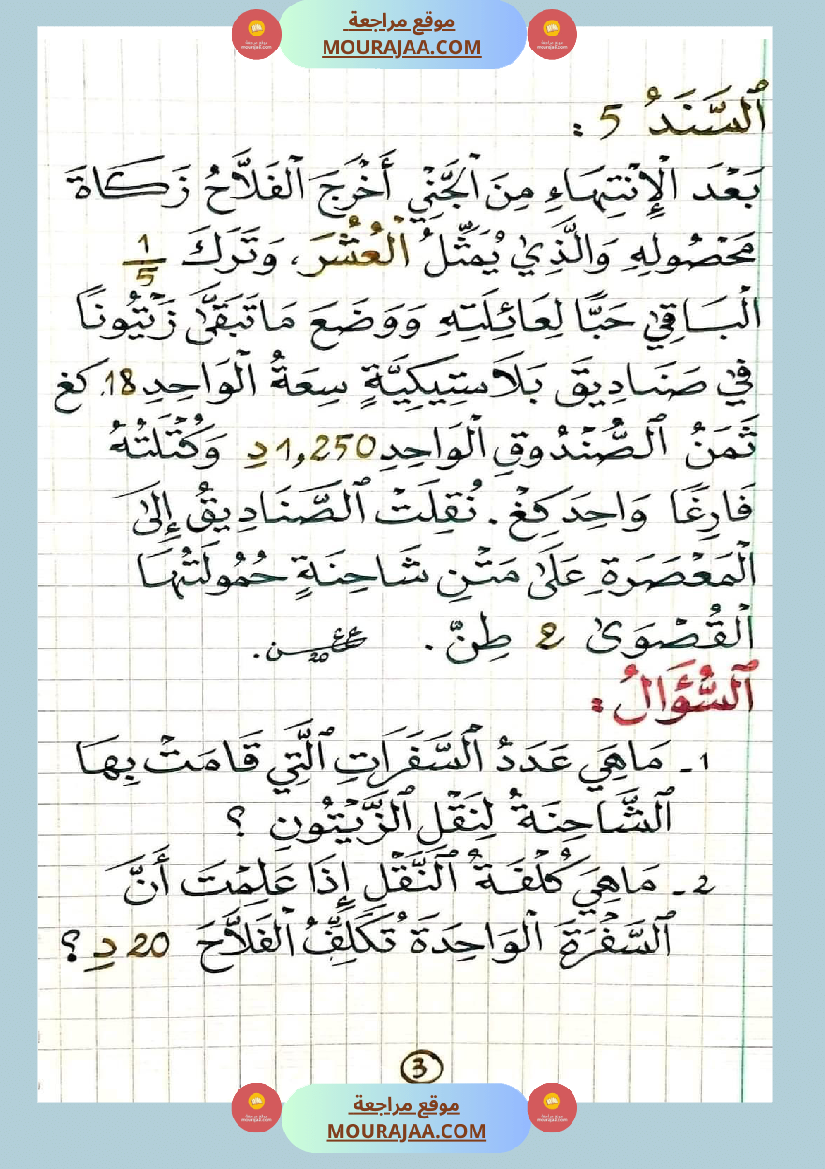 موقع مراجعة
MOURAJAA.COM
ٱلسَّنَدُ 5 :
بَعْدَ ٱلْإِنْتِهَاءِ مِنَ ٱلْجَنْيِ أَخْرَجَ ٱلْفَلَّاحُ زَكَاةَ
مَحْصُولِهِ وَالَّذِي يُمَثِّلُ ٱلْعُشُرَ، وَتَرَكَ 1/5
ٱلْبَاقِي حَبًّا لِعَائِلَتِهِ وَوَضَعَ مَا تَبَقَّى زَيْتُونًا
فِي صَنَادِيقَ بَلَاسْتِيكِيَّةٍ سِعَةُ ٱلْوَاحِدِ 18 كغ
ثَمَنُ ٱلصُّنْدُوقِ ٱلْوَاحِدِ 1,250 دِ وَكُتْلَتُهُ
فَارِغًا وَاحِدَ كِغْ . نُقِلَتْ ٱلصَّنَادِيقُ إِلَى
ٱلْمَعْصَرَةِ عَلَى مَتْنِ شَاحِنَةٍ حُمُولَتُهَا
ٱلْقُصْوَى 2 طِنّ .
ٱلسُّؤَالُ :
1 - مَا هِيَ عَدَدُ ٱلسَّفَرَاتِ ٱلَّتِي قَامَتْ بِهَا
ٱلشَّاحِنَةُ لِنَقْلِ ٱلزَّيْتُونِ ؟
2 - مَا هِيَ كُلْفَةُ ٱلنَّقْلِ إِذَا عَلِمْتَ أَنَّ
ٱلسَّفْرَةَ ٱلْوَاحِدَةَ تُكَلِّفُ ٱلْفَلَّاحَ 20 دِ ؟
3
موقع مراجعة
MOURAJAA.COM